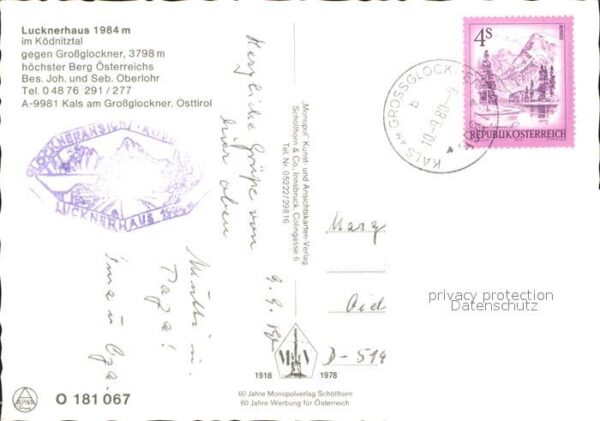 Lucknerhaus 1984 m
im Ködnitztal
gegen Großglockner, 3798 m
höchster Berg Österreichs
Bes. Joh. und Seb. Oberlohr
Tel. 0 48 76 291 / 277
A-9981 Kals am Großglockner, Osttirol
LUCKNERHAUS
Herzliche Grüße von
hier oben
9. 9.
Mutti u.
Papa!
Oma u Opa.
„Monopol“ Kunst- und Ansichtskarten-Verlag
Schöllhorn & Co. Innsbruck, Colingasse 6
Tel Nr. 05222/29816
KALS AM GROSSGLOCKNER
b
10.-9.80.-9
4 S
REPUBLIK ÖSTERREICH
Marg
Aid
D-514
privacy protection
Datenschutz
1918 M V 1978
60 Jahre Monopolverlag Schöllhorn
60 Jahre Werbung für Österreich
O 181 067